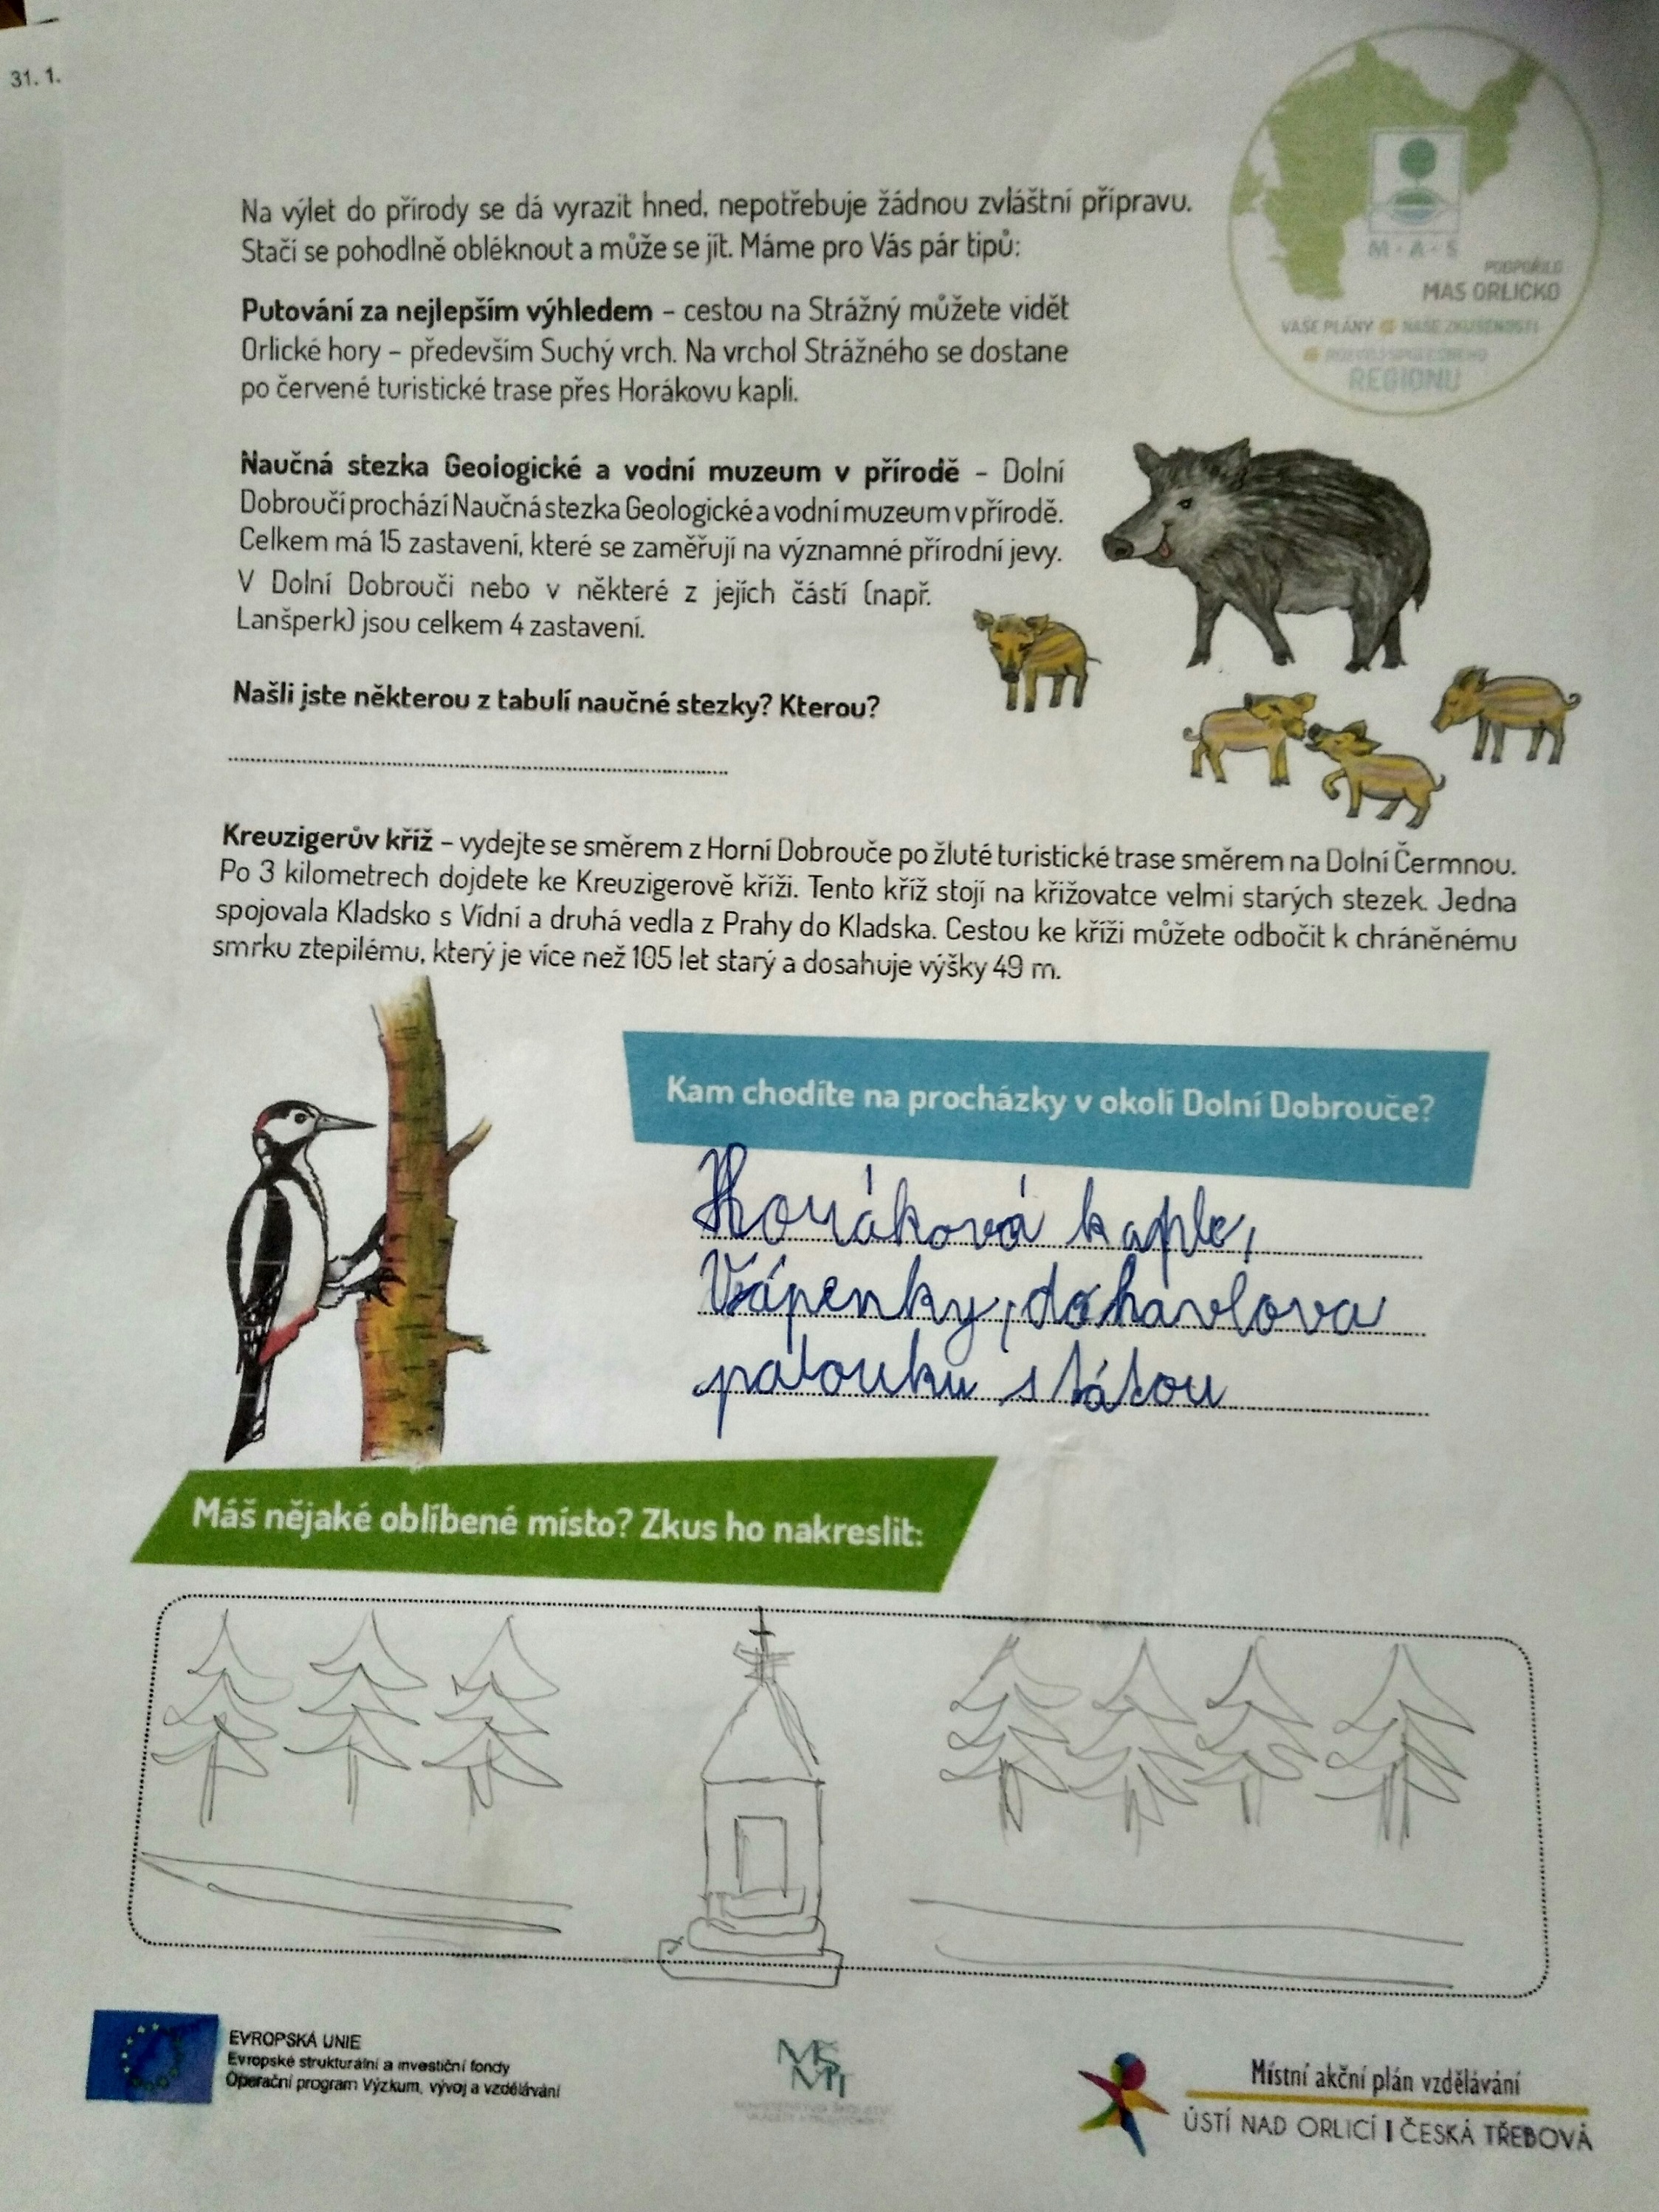 31. 1.
Na výlet do přírody se dá vyrazit hned, nepotřebuje žádnou zvláštní přípravu.
Stačí se pohodlně obléknout a může se jít. Máme pro Vás pár tipů:
M·A·S
PODPOŘILO
MAS ORLICKO
VAŠE PLÁNY NAŠE ZKUŠENOSTI
ROZVOJ SPOLEČNÉHO
REGIONU
Putování za nejlepším výhledem – cestou na Strážný můžete vidět
Orlické hory – především Suchý vrch. Na vrchol Strážného se dostane
po červené turistické trase přes Horákovu kapli.
Naučná stezka Geologické a vodní muzeum v přírodě – Dolní
Dobroučí prochází Naučná stezka Geologické a vodní muzeum v přírodě.
Celkem má 15 zastavení, které se zaměřují na významné přírodní jevy.
V Dolní Dobrouči nebo v některé z jejích částí (např.
Lanšperk) jsou celkem 4 zastavení.
Našli jste některou z tabulí naučné stezky? Kterou?
Kreuzigerův kříž – vydejte se směrem z Horní Dobrouče po žluté turistické trase směrem na Dolní Čermnou.
Po 3 kilometrech dojdete ke Kreuzigerově kříži. Tento kříž stojí na křižovatce velmi starých stezek. Jedna
spojovala Kladsko s Vídní a druhá vedla z Prahy do Kladska. Cestou ke kříži můžete odbočit k chráněnému
smrku ztepilému, který je více než 105 let starý a dosahuje výšky 49 m.
Kam chodíte na procházky v okolí Dolní Dobrouče?
Horáková kaple,
Vápenky, do havlova
palouku s tátou
Máš nějaké oblíbené místo? Zkus ho nakreslit:
EVROPSKÁ UNIE
Evropské strukturální a investiční fondy
Operační program Výzkum, vývoj a vzdělávání
MŠMT
Místní akční plán vzdělávání
ÚSTÍ NAD ORLICÍ | ČESKÁ TŘEBOVÁ